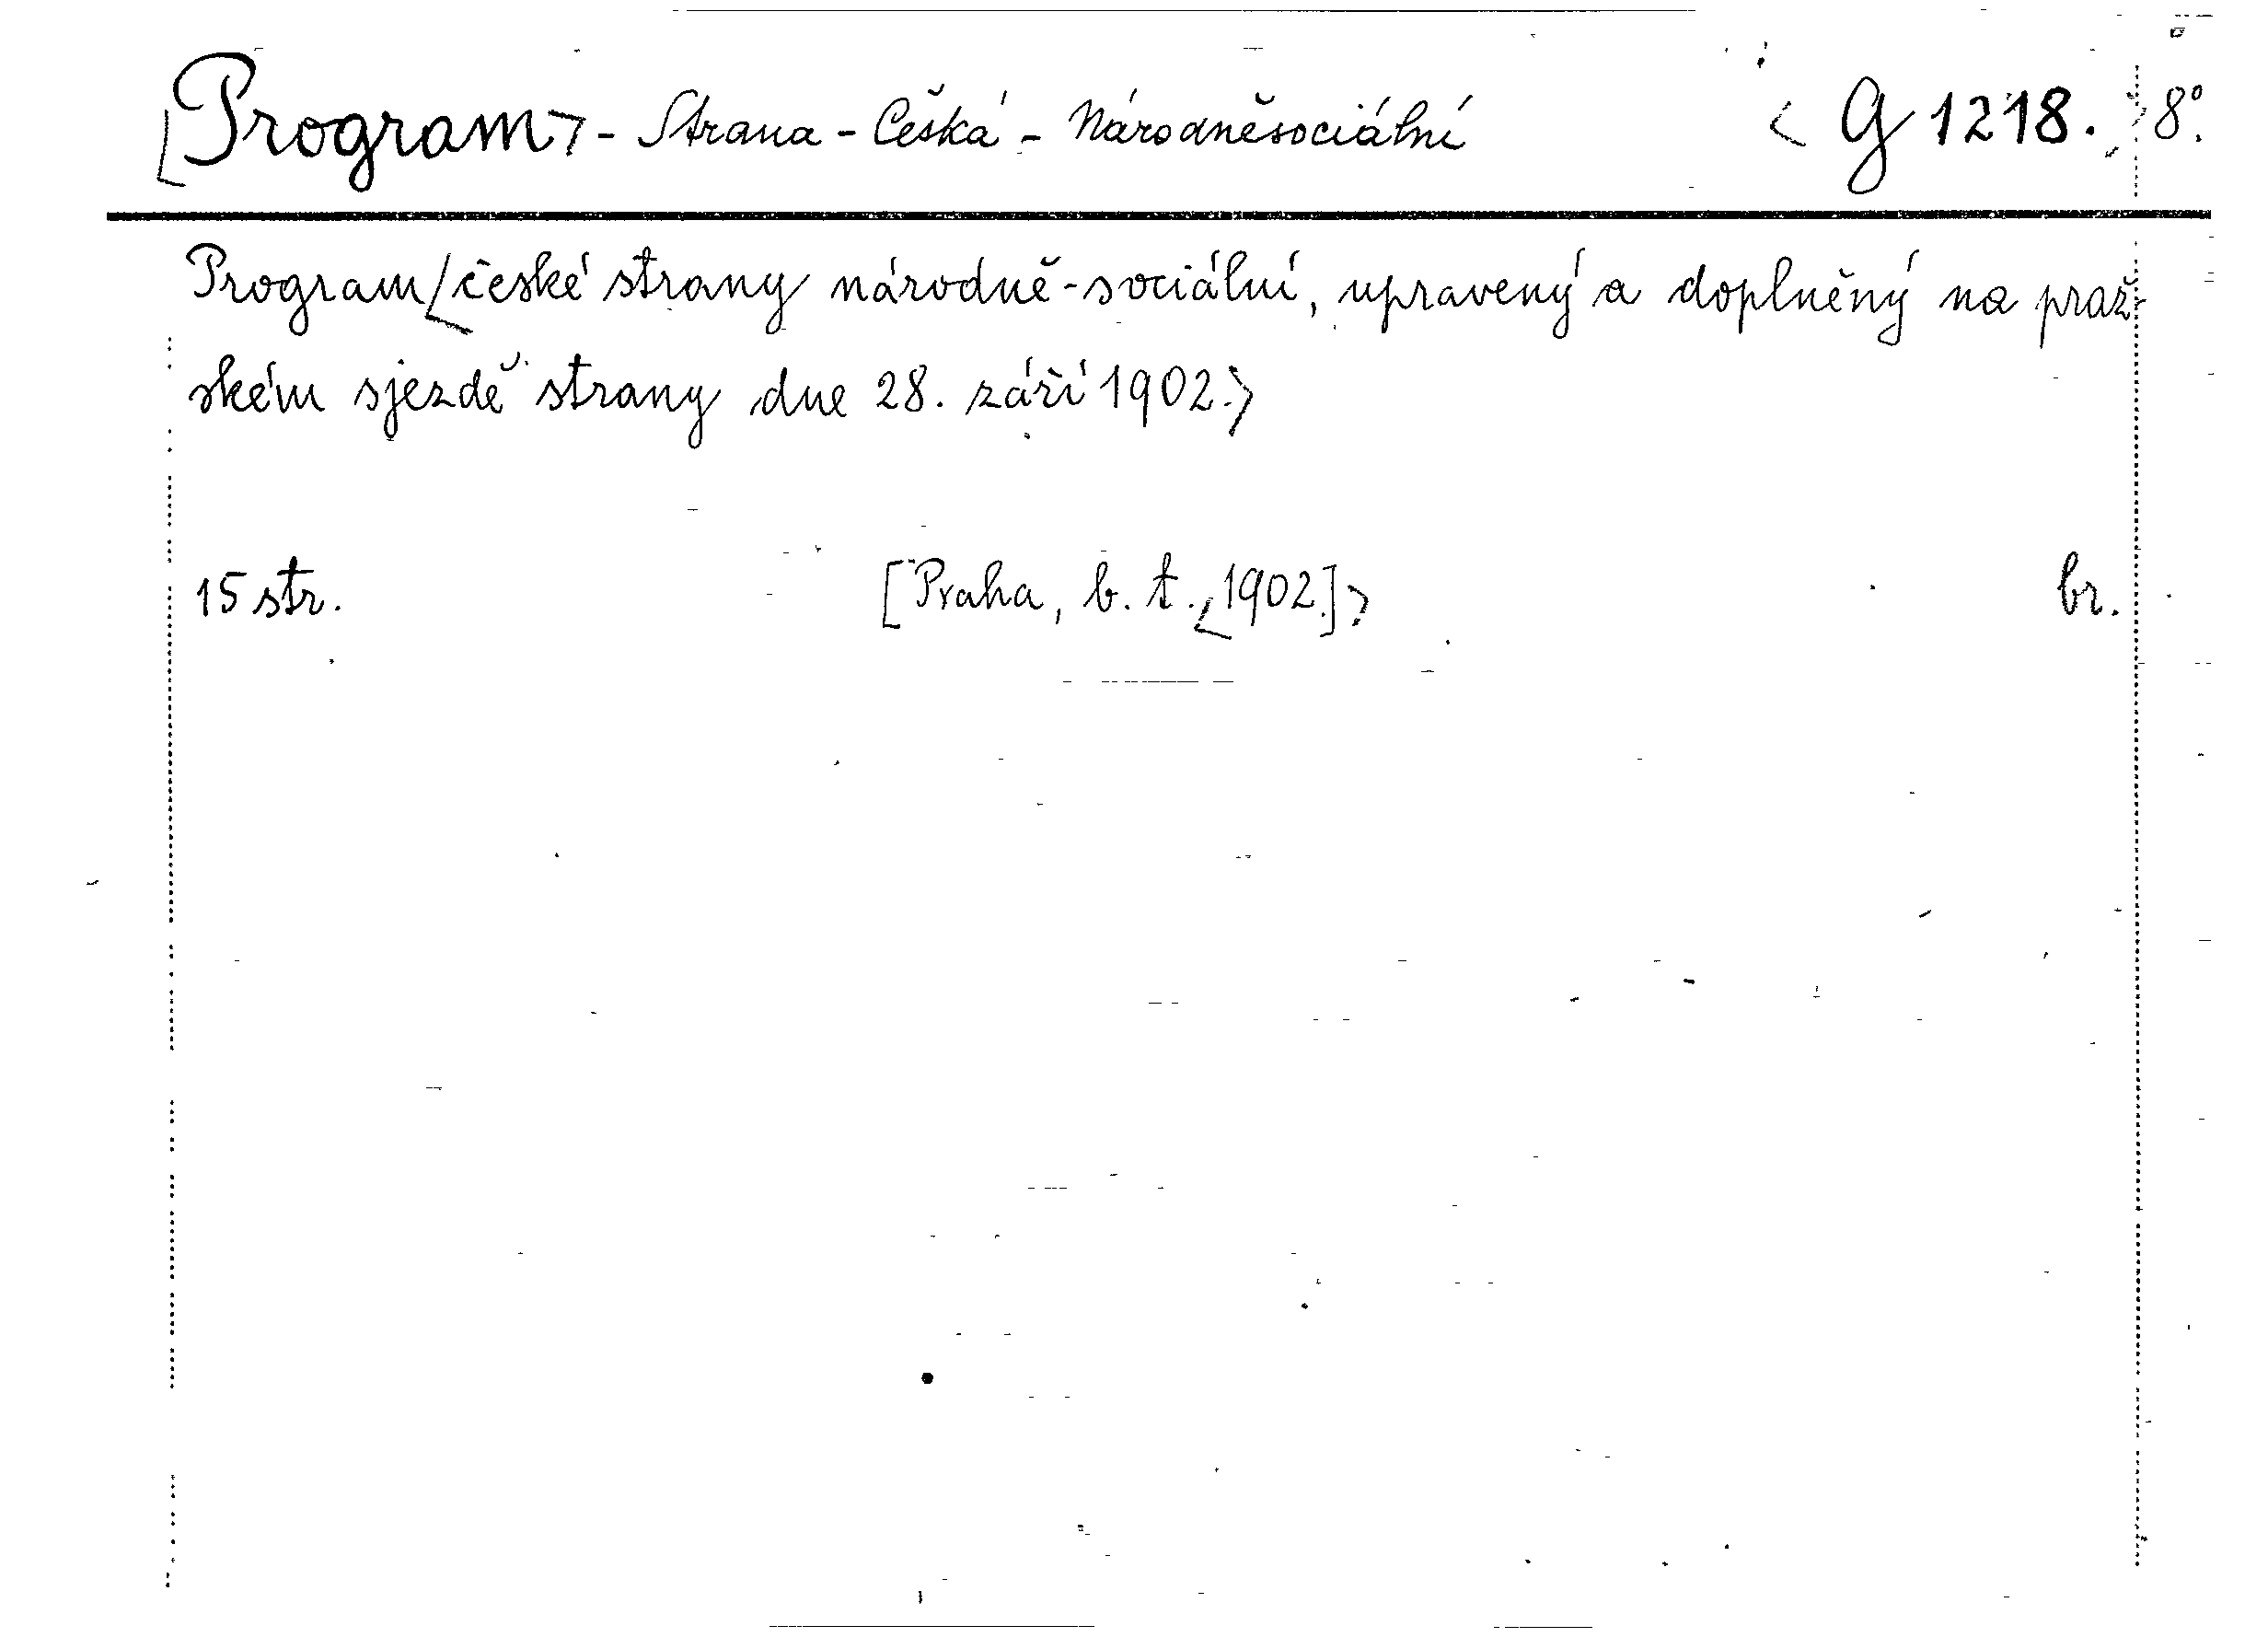 [Program> - Strana - Česká - Národněsociální < G 1218. > 8°.
Program <české strany národně-sociální, upravený a doplněný na praž-
ském sjezdě strany dne 28. září 1902.>
15 str. [Praha, b. t. <1902.]> br.